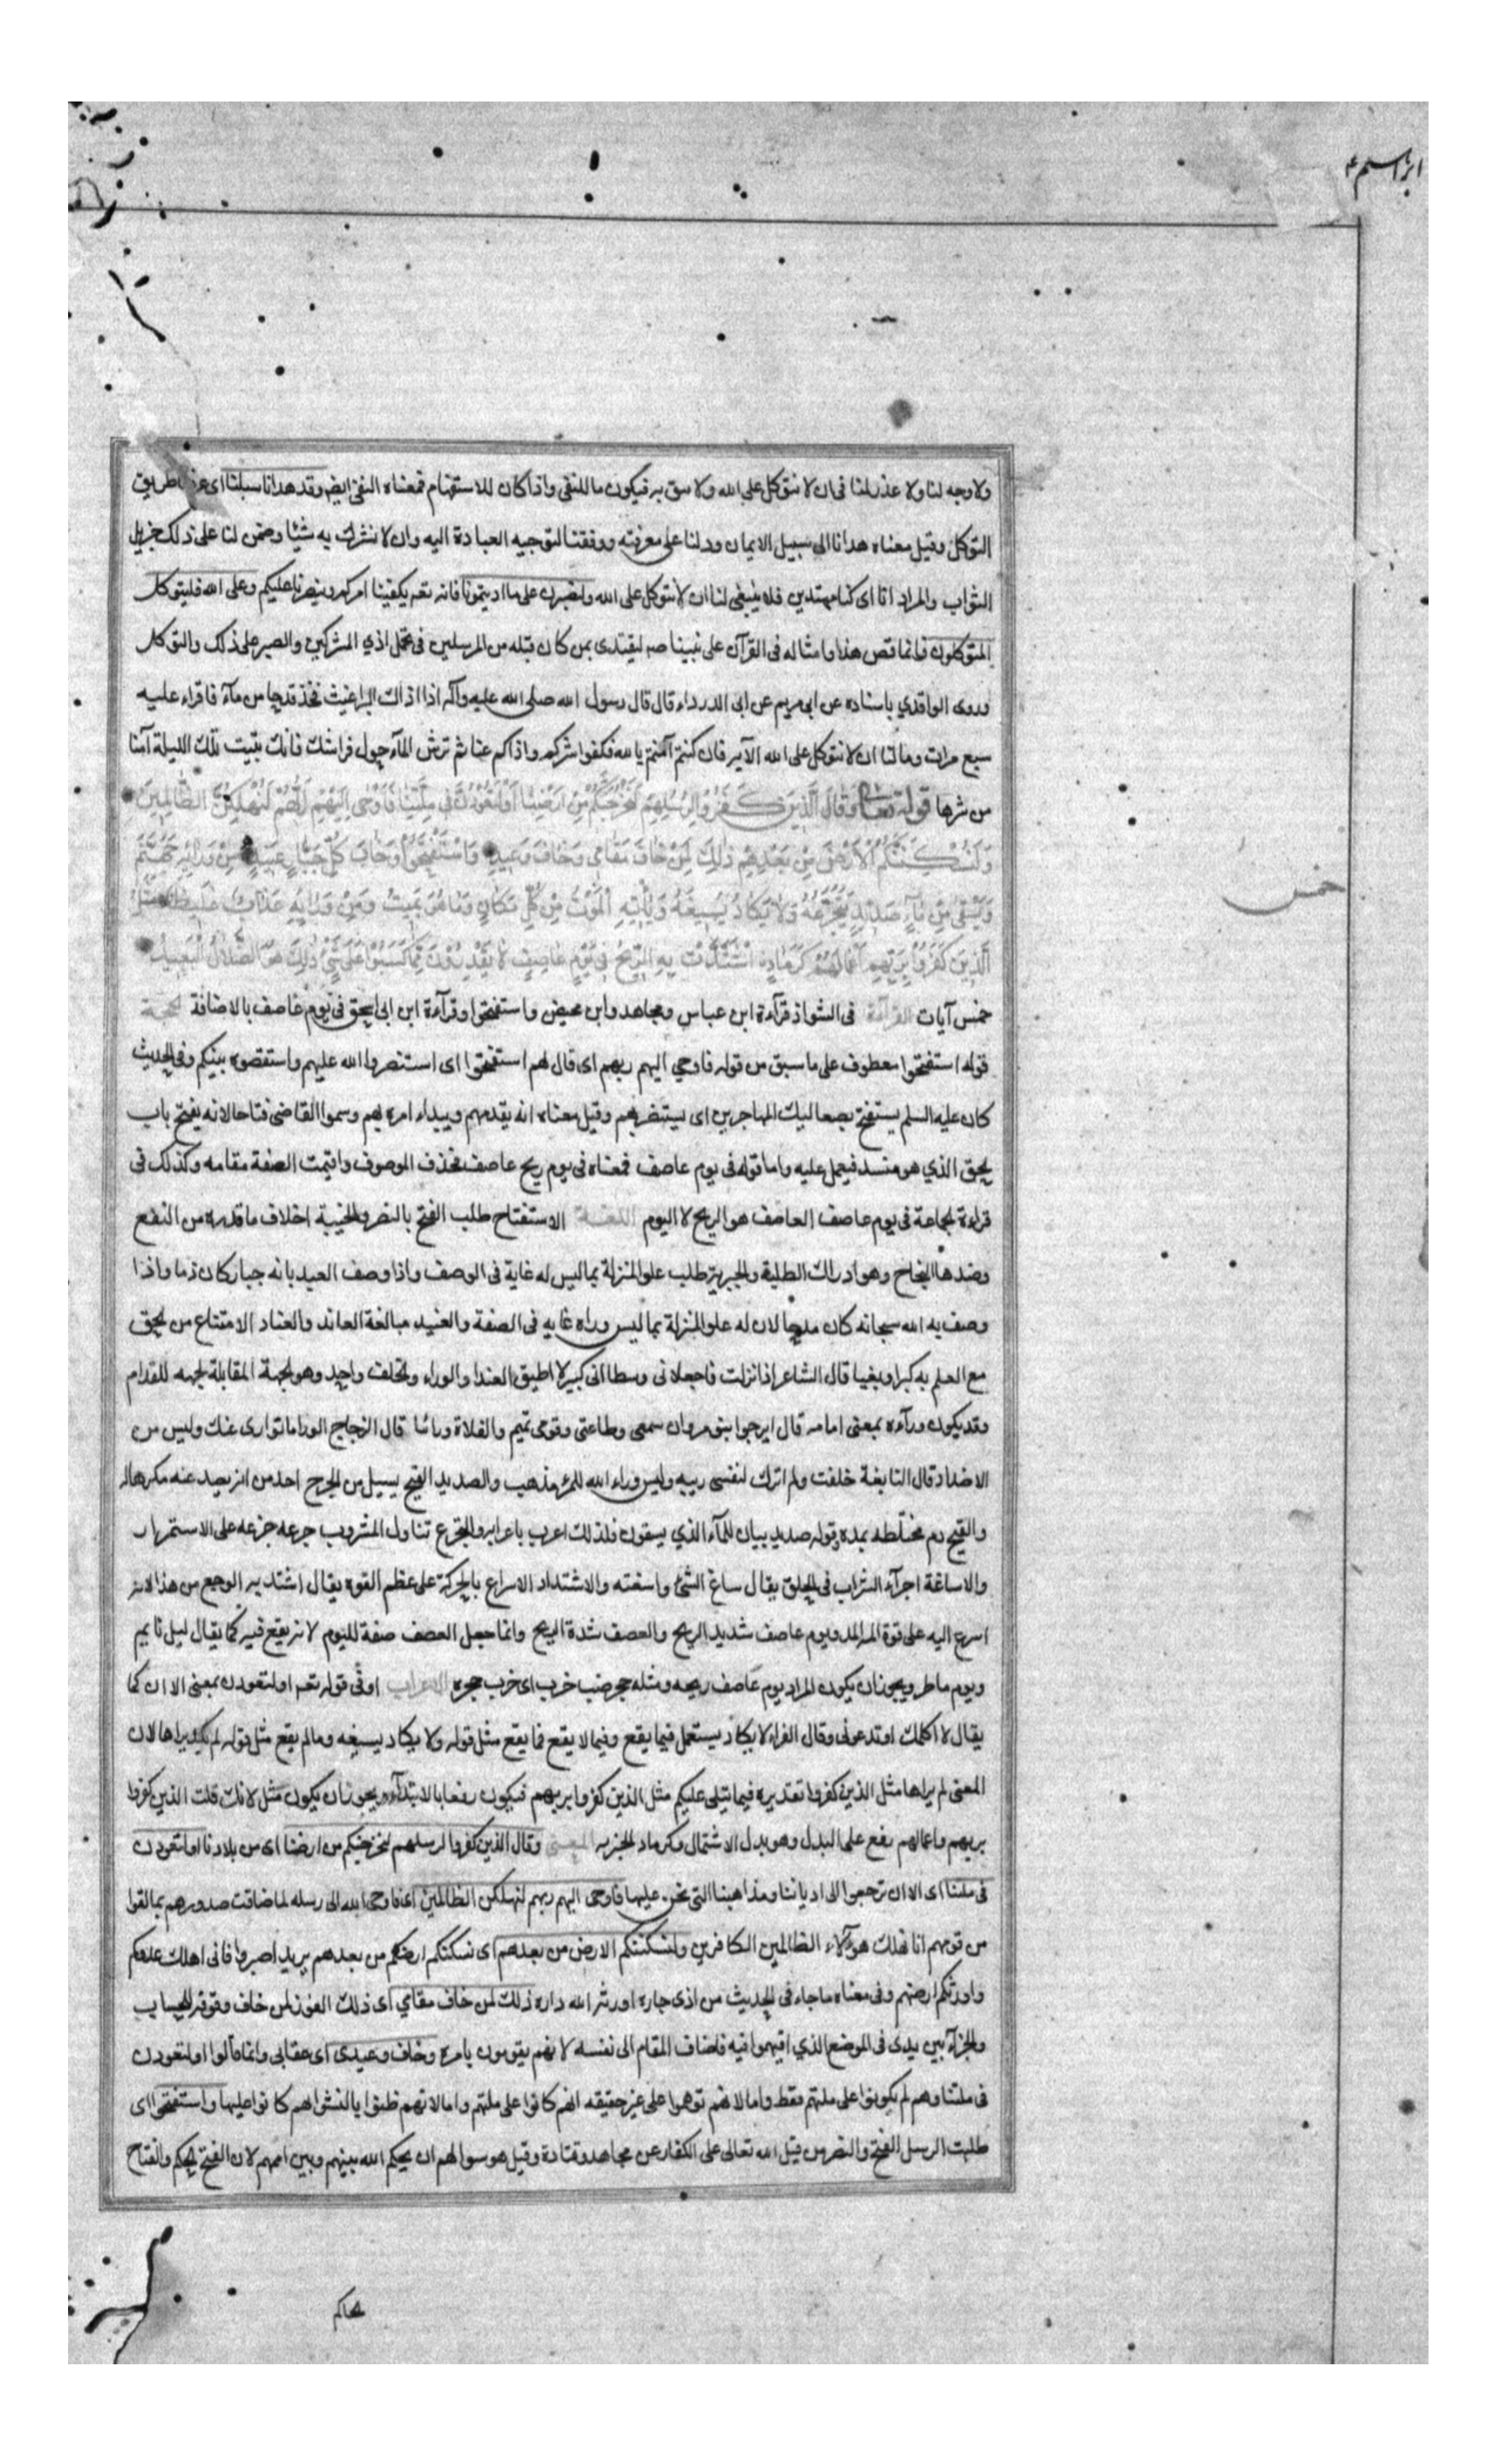 ابراهيم ٤
ولا وجه لنا ولا عذر لنا فى ان لا نتوكل على الله ولا نثق به فيكون ما للنفى واذا كان للاستفهام فمعناه النفى ايضا وقد هدانا سبلنا اى عرفنا طريق
التوكل وقيل معناه هدانا الى سبيل الايمان ودلنا على معرفته ووفقنا لتوجيه العبادة اليه وان لا نشرك به شيئا وضمن لنا على ذلك جزيل
الثواب والمراد انا اى كنا مهتدين فلا ينبغى لنا ان لا نتوكل على الله ولنصبرن على ما اذيتمونا فانه تعه يكفينا امركم وينصرنا عليكم وعلى الله فليتوكل
المتوكلون فانما قص هذا وامثاله فى القرآن على نبينا صه ليقتدى بمن كان قبله من المرسلين فى تحمل اذي المشركين والصبر على ذلك والتوكل
وروى الواقدي باسناده عن ابى مريم عن ابى الدرداء قال قال رسول الله صلى الله عليه وآله اذا اذاك البراغيث فخذ قدحا من مآء فاقراء عليه
سبع مرات وما لنا ان لا نتوكل على الله الآيه فان كنتم آمنتم بالله فكفوا شركم واذاكم عنا ثم ترش المآء حول فراشك فانك تبيت تلك الليلة آمنا
من شرها قوله تعالى وَقَالَ الَّذِينَ كَفَرُوا لِرُسُلِهِمْ لَنُخْرِجَنَّكُمْ مِنْ اَرْضِنَا اَوْ لَتَعُودُنَّ فِى مِلَّتِنَا فَاَوْحٰى اِلَيْهِمْ رَبُّهُمْ لَنُهْلِكَنَّ الظَّالِمِينَ
وَلَنُسْكِنَنَّكُمُ الْاَرْضَ مِنْ بَعْدِهِمْ ذٰلِكَ لِمَنْ خَافَ مَقَامِى وَخَافَ وَعِيدِ وَاسْتَفْتَحُوا وَخَابَ كُلُّ جَبَّارٍ عَنِيدٍ مِنْ وَرَائِهِ جَهَنَّمُ
وَيُسْقٰى مِنْ مَآءٍ صَدِيدٍ يَتَجَرَّعُهُ وَلَا يَكَادُ يُسِيغُهُ وَيَأْتِيهِ الْمَوْتُ مِنْ كُلِّ مَكَانٍ وَمَا هُوَ بِمَيِّتٍ وَمِنْ وَرَائِهِ عَذَابٌ غَلِيظٌ مَثَلُ
الَّذِينَ كَفَرُوا بِرَبِّهِمْ اَعْمَالُهُمْ كَرَمَادٍ اشْتَدَّتْ بِهِ الرِّيحُ فِى يَوْمٍ عَاصِفٍ لَا يَقْدِرُونَ مِمَّا كَسَبُوا عَلٰى شَىْءٍ ذٰلِكَ هُوَ الضَّلَالُ الْبَعِيدُ
خمس
خمس آيات القرآءة فى الشواذ قرآءة ابن عباس ومجاهد وابن محيص واستفتحوا وقرآءة ابن ابى اسحق فى يوم عاصف بالاضافة الحجة
قوله استفتحوا معطوف على ما سبق من قوله فاوحي اليهم ربهم اى قال لهم استفتحوا اى استنصروا الله عليهم واستقضوه بينكم وفى الحديث
كان عليه السلم يستفتح بصعاليك المهاجرين اى يستنصر بهم وقيل معناه انه يقدمهم ويبداء امره بهم وسموا القاضى فتاحا لانه يفتح باب
الحق الذي هو منسد فيعمل عليه واما قوله فى يوم عاصف فمعناه فى يوم ريح عاصف فحذف الموصوف واقيمت الصفة مقامه وكذلك فى
قراءة الجماعة فى يوم عاصف العاصف هو الريح لا اليوم اللغة الاستفتاح طلب الفتح بالنصر والخيبة اخلاف ما قدر به من النفع
وضدها النجاح وهو ادراك الطلبة والجبرية طلب علو المنزلة بما ليس له غاية فى الوصف واذا وصف العبد بانه جبار كان ذما واذا
وصف به الله سبحانه كان مدحا لان له علو المنزلة بما ليس وراه غايه فى الصفة والعنيد مبالغة العاند والعناد الامتناع من الحق
مع العلم به كبرا وبغيا قال الشاعر اذا نزلت فاجعلانى وسطا انى كبير لا اطيق العندا والوراء والخلف واحد وهو الجهة المقابلة لجهه للقدام
وقد يكون ورآءه بمعنى امامه قال ايرجوا بنو مروان سمعى وطاعتى وقومى تميم والفلاة ورائيا قال الزجاج الورا ما توارى عنك وليس من
الاضداد قال النابغة حلفت ولم اترك لنفسى ريبه وليس وراء الله للمرء مذهب والصديد القيح يسيل من الجرح احذ من انه يصد عنه مكرها له
والقيح دم مختلطه بمده وقوله صديد بيان للمآء الذي يسقون فلذلك اعرب باعرابه والتجرع تناول المشروب جرعه جرعه على الاستمرار
والاساغة اجرآء الشراب فى الحلق يقال ساغ الشئ واسغته والاشتداد الاسراع بالحركة على عظم القوه يقال اشتد به الوجع من هذا لانه
اسرع اليه على قوة الم الم ويوم عاصف شديد الريح والعصف شدة الريح وانما جعل العصف صفة لليوم لانه يقع فيه كما يقال ليل نايم
ويوم ماطر ويجوز ان يكون المراد يوم عاصف ريحه ومثله جحر ضب خرب اى خرب جحره الاعراب او فى قوله تعه او لتعودن بمعنى الا ان كما
يقال لا اكلمك او تدعونى وقال الفراء لا يكاد يستعمل فيما يقع وفيما لا يقع فما يقع مثل قوله ولا يكاد يسيغه وما لم يقع مثل قوله لم يكد يراها لان
المعنى لم يراها مثل الذين كفروا تقديره فيما يتلى عليكم مثل الذين كفروا بربهم فيكون رفعا بالابتدآء ويجوز ان يكون مثل لانك قلت الذين كفروا
بربهم واعمالهم رفع على البدل وهو بدل الاشتمال وكرماد الخبر به المعنى وقال الذين كفروا لرسلهم لنخرجنكم من ارضنا اى من بلادنا او لتعودن
فى ملتنا اى الا ان ترجعوا الى ادياننا ومذاهبنا التى نحن عليها فاوحى اليهم ربهم لنهلكن الظالمين اى فاوحى الله الى رسله لما ضاقت صدورهم بما لقوا
من قومهم انا نهلك هؤلاء الظالمين الكافرين ولنسكننكم الارض من بعدهم اى نسكنكم ارضكم من بعدهم يريد اصبروا فانى اهلك عدوكم
واورثكم ارضهم وفى معناه ما جاء فى الحديث من اذى جاره اورثه الله داره ذلك لمن خاف مقامي اى ذلك الفوز لمن خاف وقوفه للحساب
والجزآء بين يدى فى الموضع الذي اقيهموا فيه فاضاف المقام الى نفسه لانهم يقومون بامره وخاف وعيدى اى عقابى وانما قالوا او لتعودن
فى ملتنا وهم لم يكونوا على ملتهم فقط واما لانهم توهموا على غير حقيقه انهم كانوا على ملتهم واما لانهم ظنوا بالنشو انهم كانوا عليها واستفتحوا اى
طلبت الرسل الفتح والنصر من قبل الله تعالى على الكفار عن مجاهد وقتادة وقيل هو سوالهم ان يحكم الله بينهم وبين اممهم لان الفتح الحكم والفتاح
الحاكم